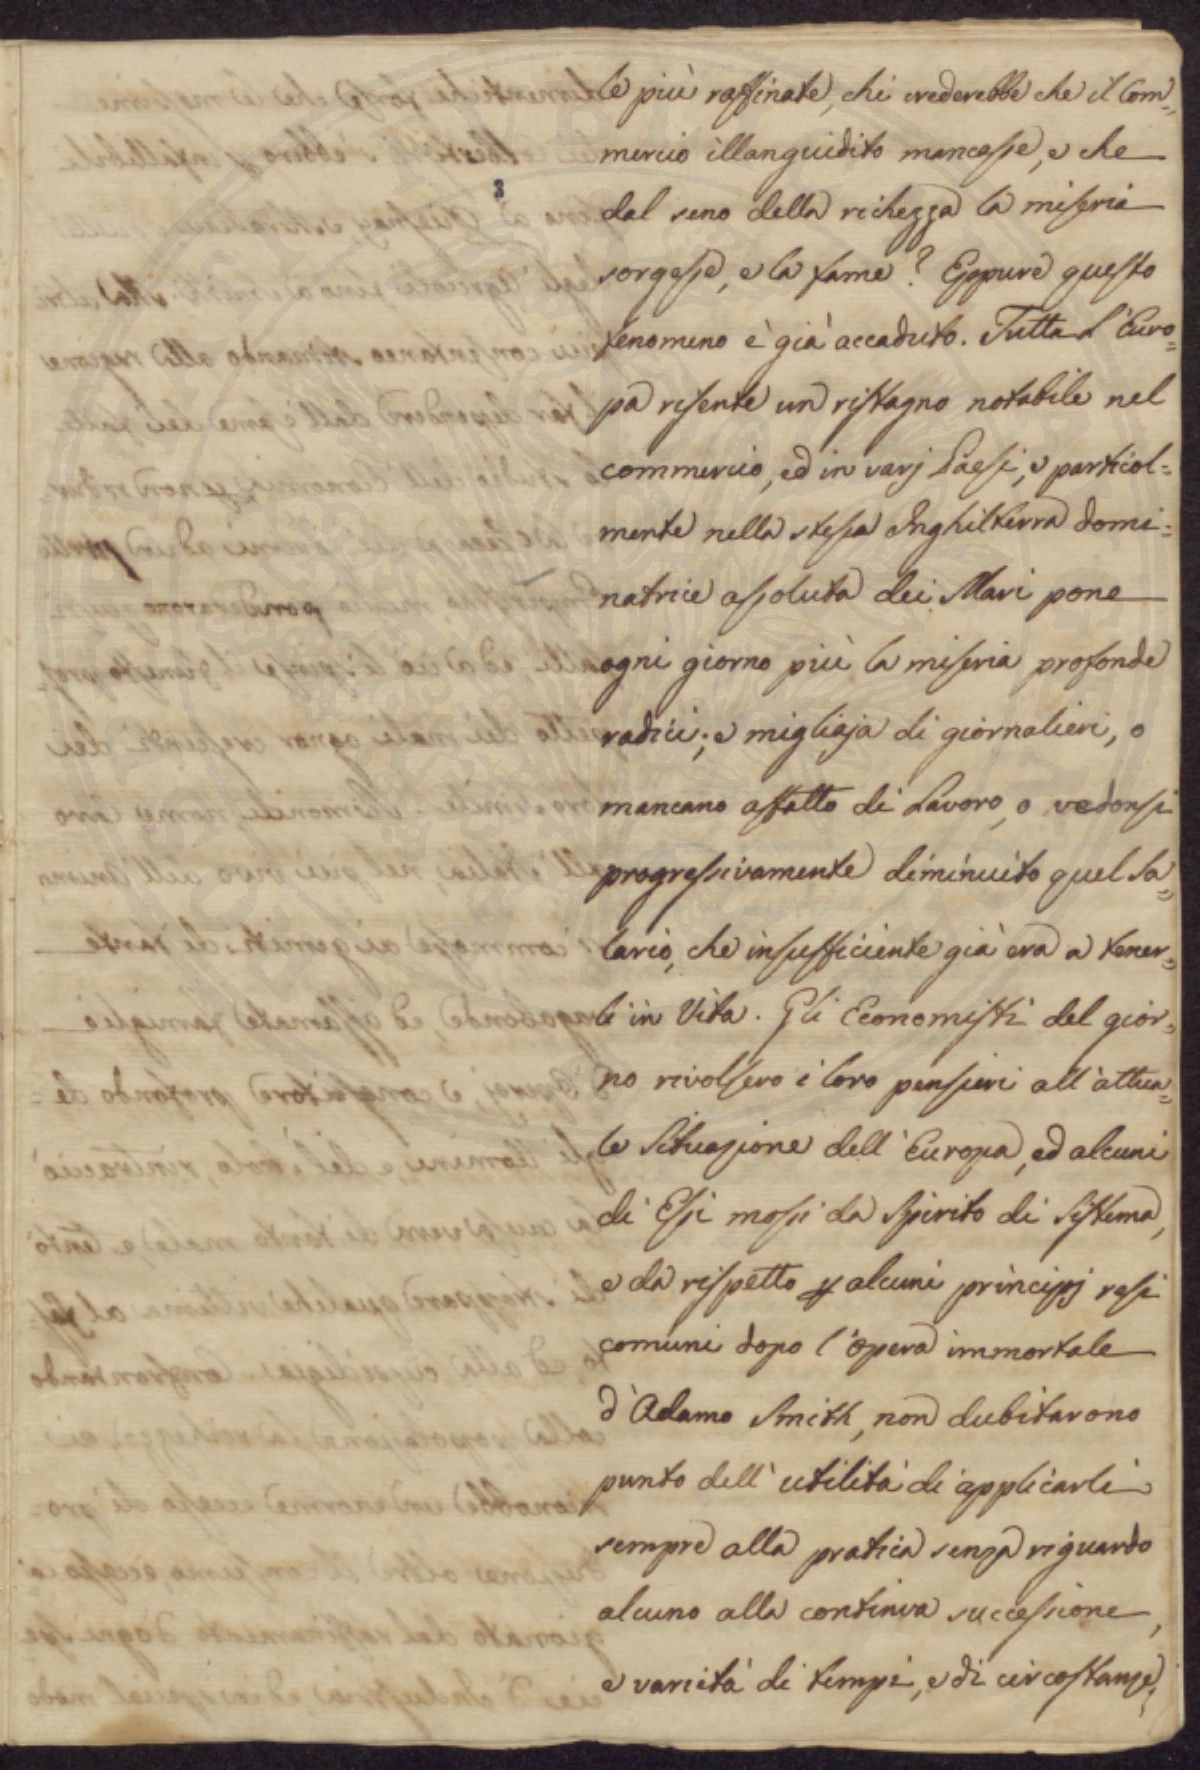 le più raffinate, chi crederebbe che il Com„
mercio illanguidito mancasse, e che
dal seno della richezza la miseria
sorgesse, e la fame? Eppure questo
fenomeno è già accaduto. Tutta l'Euro=
pa risente un ristagno notabile nel
commercio, ed in varj Paesi, e particol=
mente nella stessa Inghilterra domi=
natrice assoluta dei Mari pone
ogni giorno più la miseria profonde
radici; e migliaja di giornalieri, o
mancano affatto di Lavoro, o vedonsi
progressivamente diminuito quel Sa=
lario, che insufficiente già era a tener=
li in Vita. Gli Economisti del gior=
no rivolsero i loro pensieri all'attua=
le Situazione dell'Europa, ed alcuni
di Essi mossi da Spirito di Sistema,
e da rispetto p alcuni principj resi
comuni dopo l'opera immortale
d'Adamo Smith, non dubitarono
punto dell'utilità di applicarli
sempre alla pratica senza riguardo
alcuno alla continua successione,
e varietà di tempi, e di circostanze;